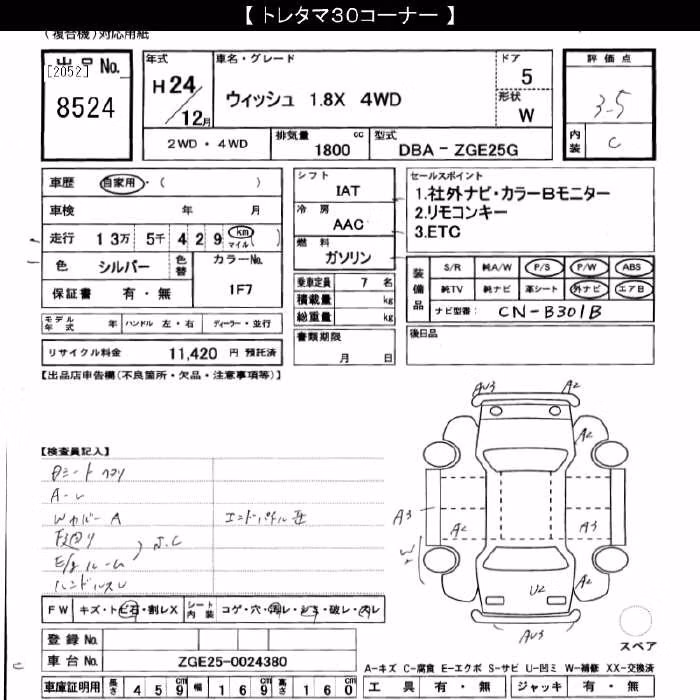 【 トレタマ30コーナー 】
(複合機)対応用紙
出品No.
[2052]
8524
年式
H24/12月
車名・グレード
ウィッシュ 1.8X 4WD
ドア
5
形状
W
評価点
3.5
内装
C
2WD・4WD
排気量 cc
1800
型式
DBA - ZGE25G
車歴 自家用・( )
車検 年 月
走行 13万 5千 4 2 9 km マイル ( )
色 シルバー
色替
カラーNo.
1F7
保証書 有・無
モデル年式 年 ハンドル 左・右 ディーラー・並行
リサイクル料金 11,420 円 預託済
シフト
IAT
冷房
AAC
燃料
ガソリン
乗車定員 7 名
積載量 kg
総重量 kg
書類期限
月 日
セールスポイント
1.社外ナビ・カラーBモニター
2.リモコンキー
3.ETC
装備品
S/R 純A/W P/S P/W ABS
純TV 純ナビ 革シート 外ナビ エアB
ナビ型番: CN-B301B
後日品
【出品店申告欄(不良箇所・欠品・注意事項等)】
【検査員記入】
Wカバー A
下廻り
E/gルーム
S.C
ハンドルスレ
AU3
A2
A2
A3
A2
A3
W
A2
U2
AU3
FW キズ・トビ石・割レX
シート内装 コゲ・穴・汚レ・シミ・破レ・スレ
登録No.
車台No. ZGE25-0024380
車庫証明用 長さ 459 cm 幅 169 cm 高さ 160 cm
スペア
A-キズ C-腐食 E-エクボ S-サビ U-凹ミ W-補修 XX-交換済
工具 有・無 ジャッキ 有・無